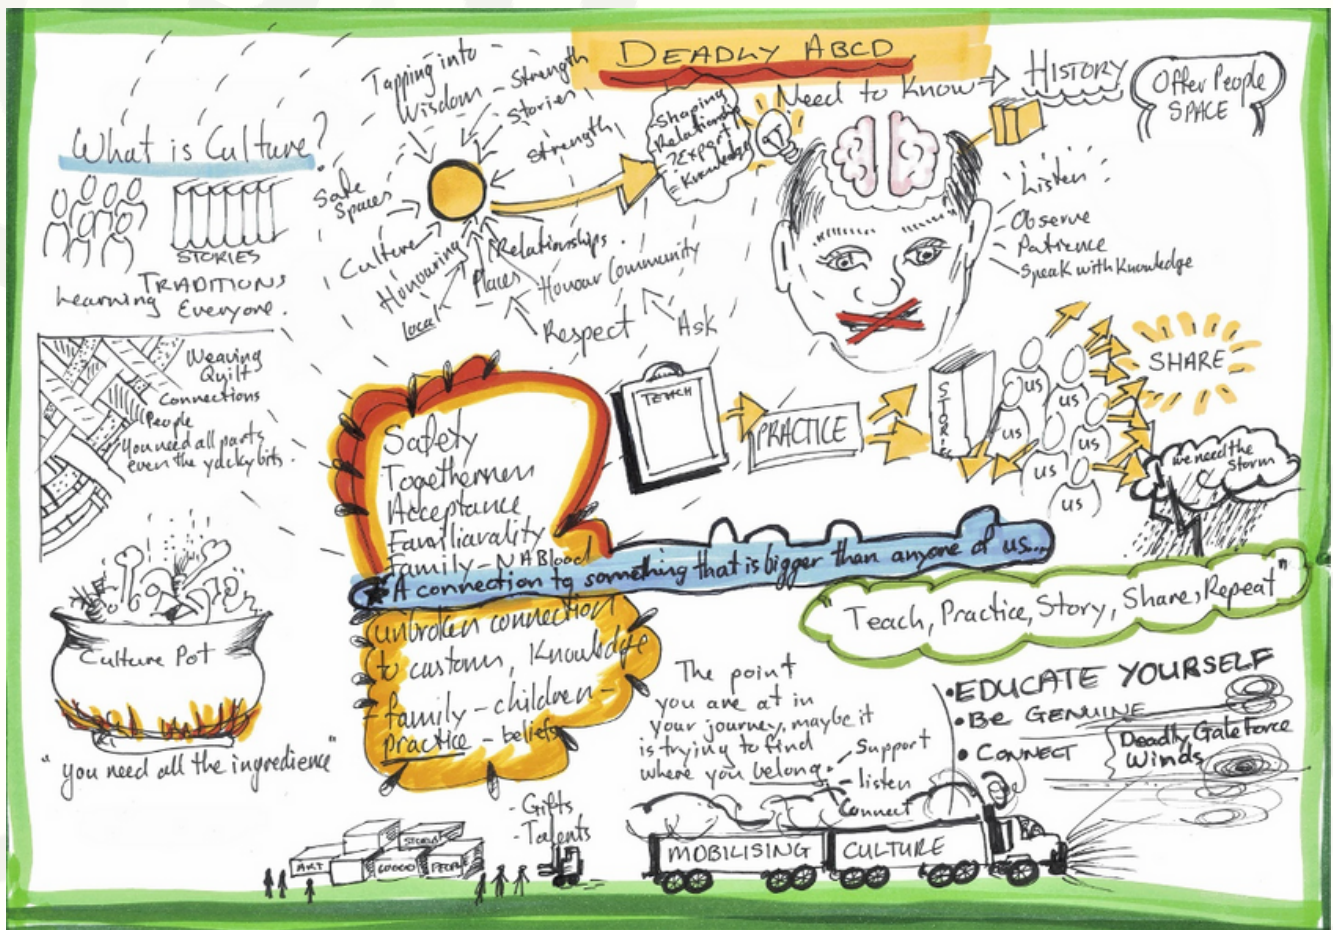 DEADLY ABCD
What is Culture?
STORIES
TRADITIONS
Learning Everyone.
Tapping into
Wisdom - Strength
Stories
Strength
Safe
Spaces
Culture
Honouring
Local
Places
Relationships.
Honour Community
Respect
Ask
-Shaping
Relationship
-Expert
=Knowledge
Need to Know
HISTORY
Offer People
SPACE
Listen
Observe
Patience
Speak with Knowledge
Weaving
Quilt
Connections
People
You need all parts
even the yacky bits.
Culture Pot
"you need all the ingredience"
Safety
Togetherness
Acceptance
Familiavality
Family - NABlood
A connection to something that is bigger than anyone of us...
unbroken connection
to customs, Knowledge
- family - children -
practice - beliefs
TEACH
PRACTICE
STORIES
us
us
us
us
us
us
SHARE
we need the
Storm
"Teach, Practice, Story, Share, Repeat"
The point
you are at in
your journey, maybe it
is trying to find
where you belong.
- Support
- listen
Connect
• EDUCATE YOURSELF
• BE GENUINE
• CONNECT
Deadly Gale Force
Winds
- Gifts
- Talents
STORIES
ART
PEOPLE
MOBILISING CULTURE